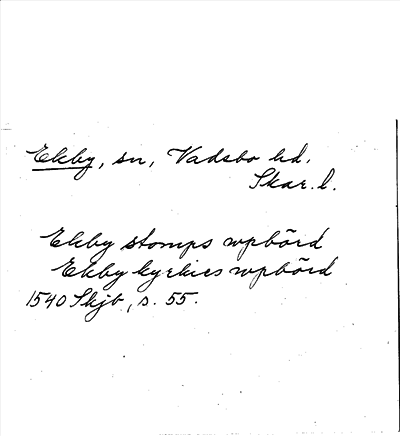 Ekby, sn, Vadsbo hd.
Skar. l.
Ekby stomps wpbörd
Ekby kyrkies wpbörd
1540 Skjb, s. 55.